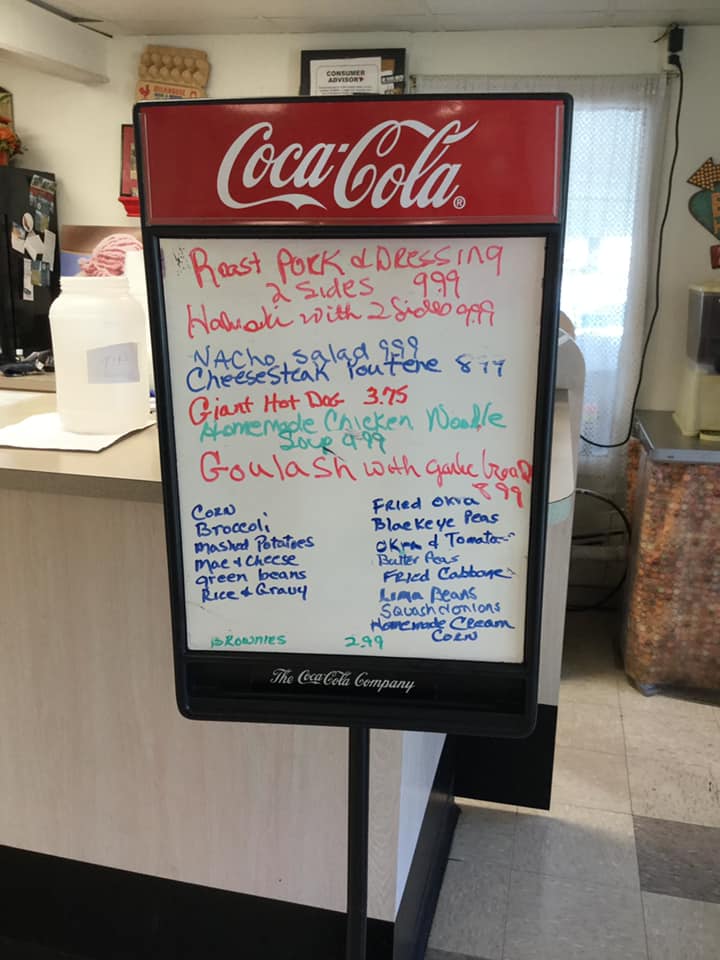 CONSUMER
ADVISORY
Coca-Cola®
Roast Pork & Dressing
2 Sides 9.99
with 2 Sides 9.99
NACho Salad 9.99
Cheesesteak Poutene 8 99
Giant Hot Dog 3.75
Homemade Chicken Noodle
Soup 9.99
Goulash with garlic bread
8 99
Corn
Broccoli
Mashed Potatoes
Mac & Cheese
green beans
Rice & Gravy
Fried Okra
Blackeye Peas
Okra & Tomatoes
Butter Peas
Fried Cabbage
Lima Beans
Squash & onions
Homemade Cream
Corn
Brownies 2.99
The Coca-Cola Company